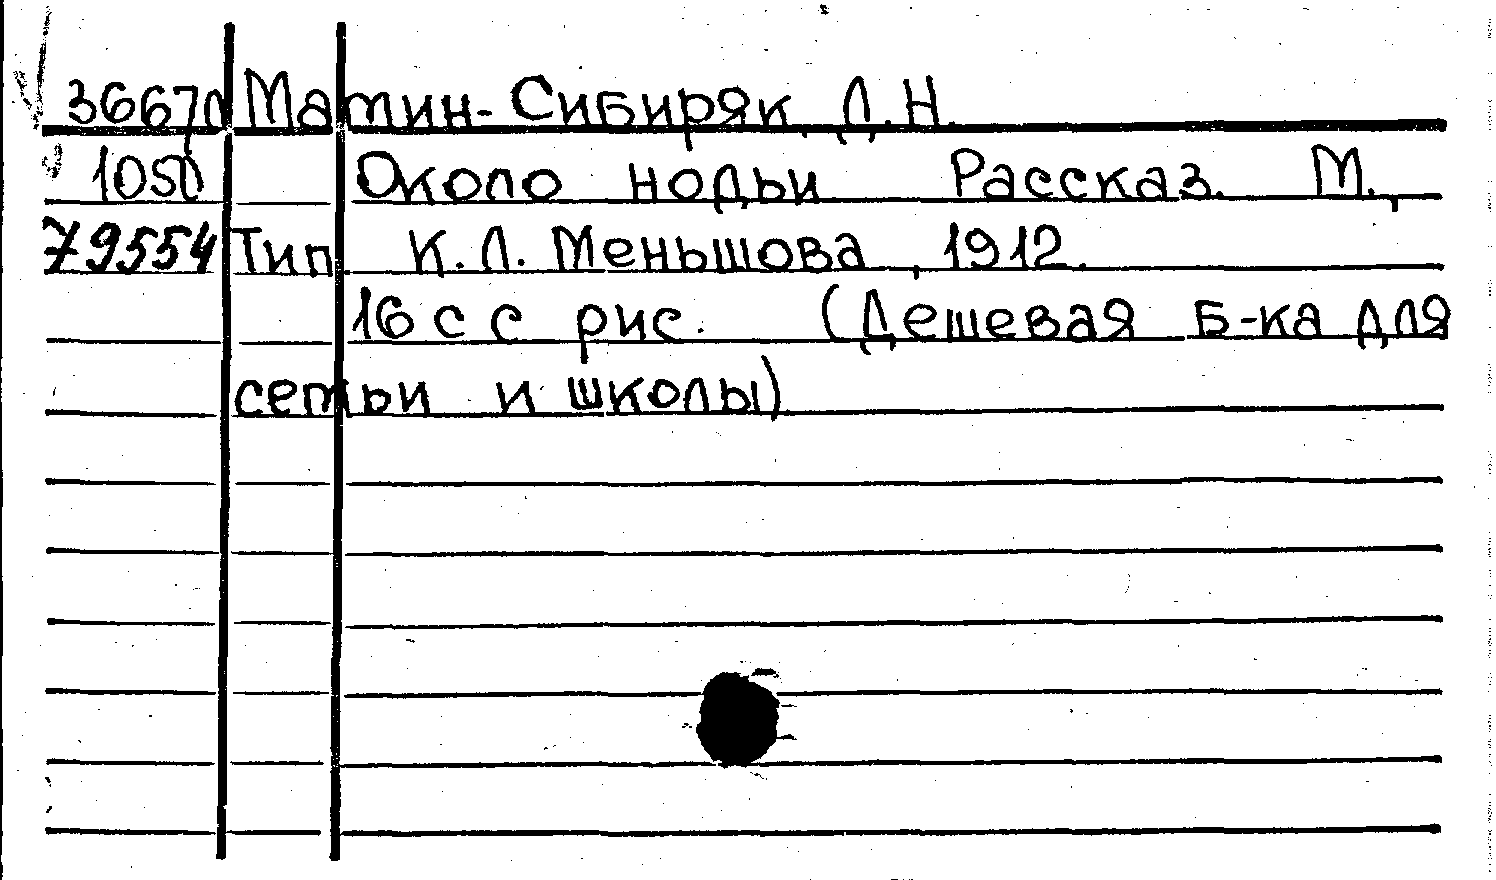 Мамин-Сибиряк, Д.Н.
1050 Около нодьи Рассказ. М.,
79554 Тип. К.Л. Меньшова, 1912.
16 с с рис. (Дешевая б-ка для
семьи и школы)